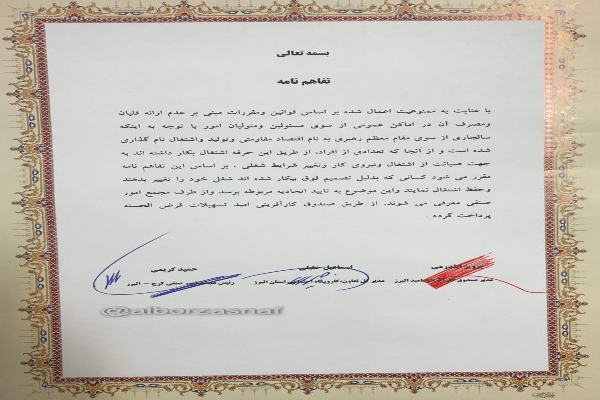 بسمه تعالی
تفاهم نامه
با عنایت به ممنوعیت اعمال شده بر اساس قوانین ومقررات مبنی بر عدم ارائه قلیان
ومصرف آن در اماکن عمومی از سوی مسئولین ومتولیان امور با توجه به اینکه
سالجاری از سوی مقام معظم رهبری به نام اقتصاد مقاومتی وتولید واشتغال نام گذاری
شده است و از آنجا که تعدادی از افراد، از طریق این حرفه اشتغال بکار داشته اند به
جهت صیانت از اشتغال ونیروی کار وتغییر شرایط شغلی ، بر اساس این تفاهم نامه
مقرر می شود کسانی که بدلیل تصمیم فوق بیکار شده اند شغل خود را تغییر بدهند
وحفظ اشتغال نمایند واین موضوع به تایید اتحادیه مربوطه برسد واز طرف مجمع امور
صنفی معرفی می شوند. از طریق صندوق کارآفرینی امید تسهیلات قرض الحسنه
پرداخت گردد .
حمید کریمی
اسماعیل
رئیس صنفی کرج – البرز
مدیر کل تعاون، کار ورفاه استان البرز
مدیر صندوق امید البرز
@alborzasnaf